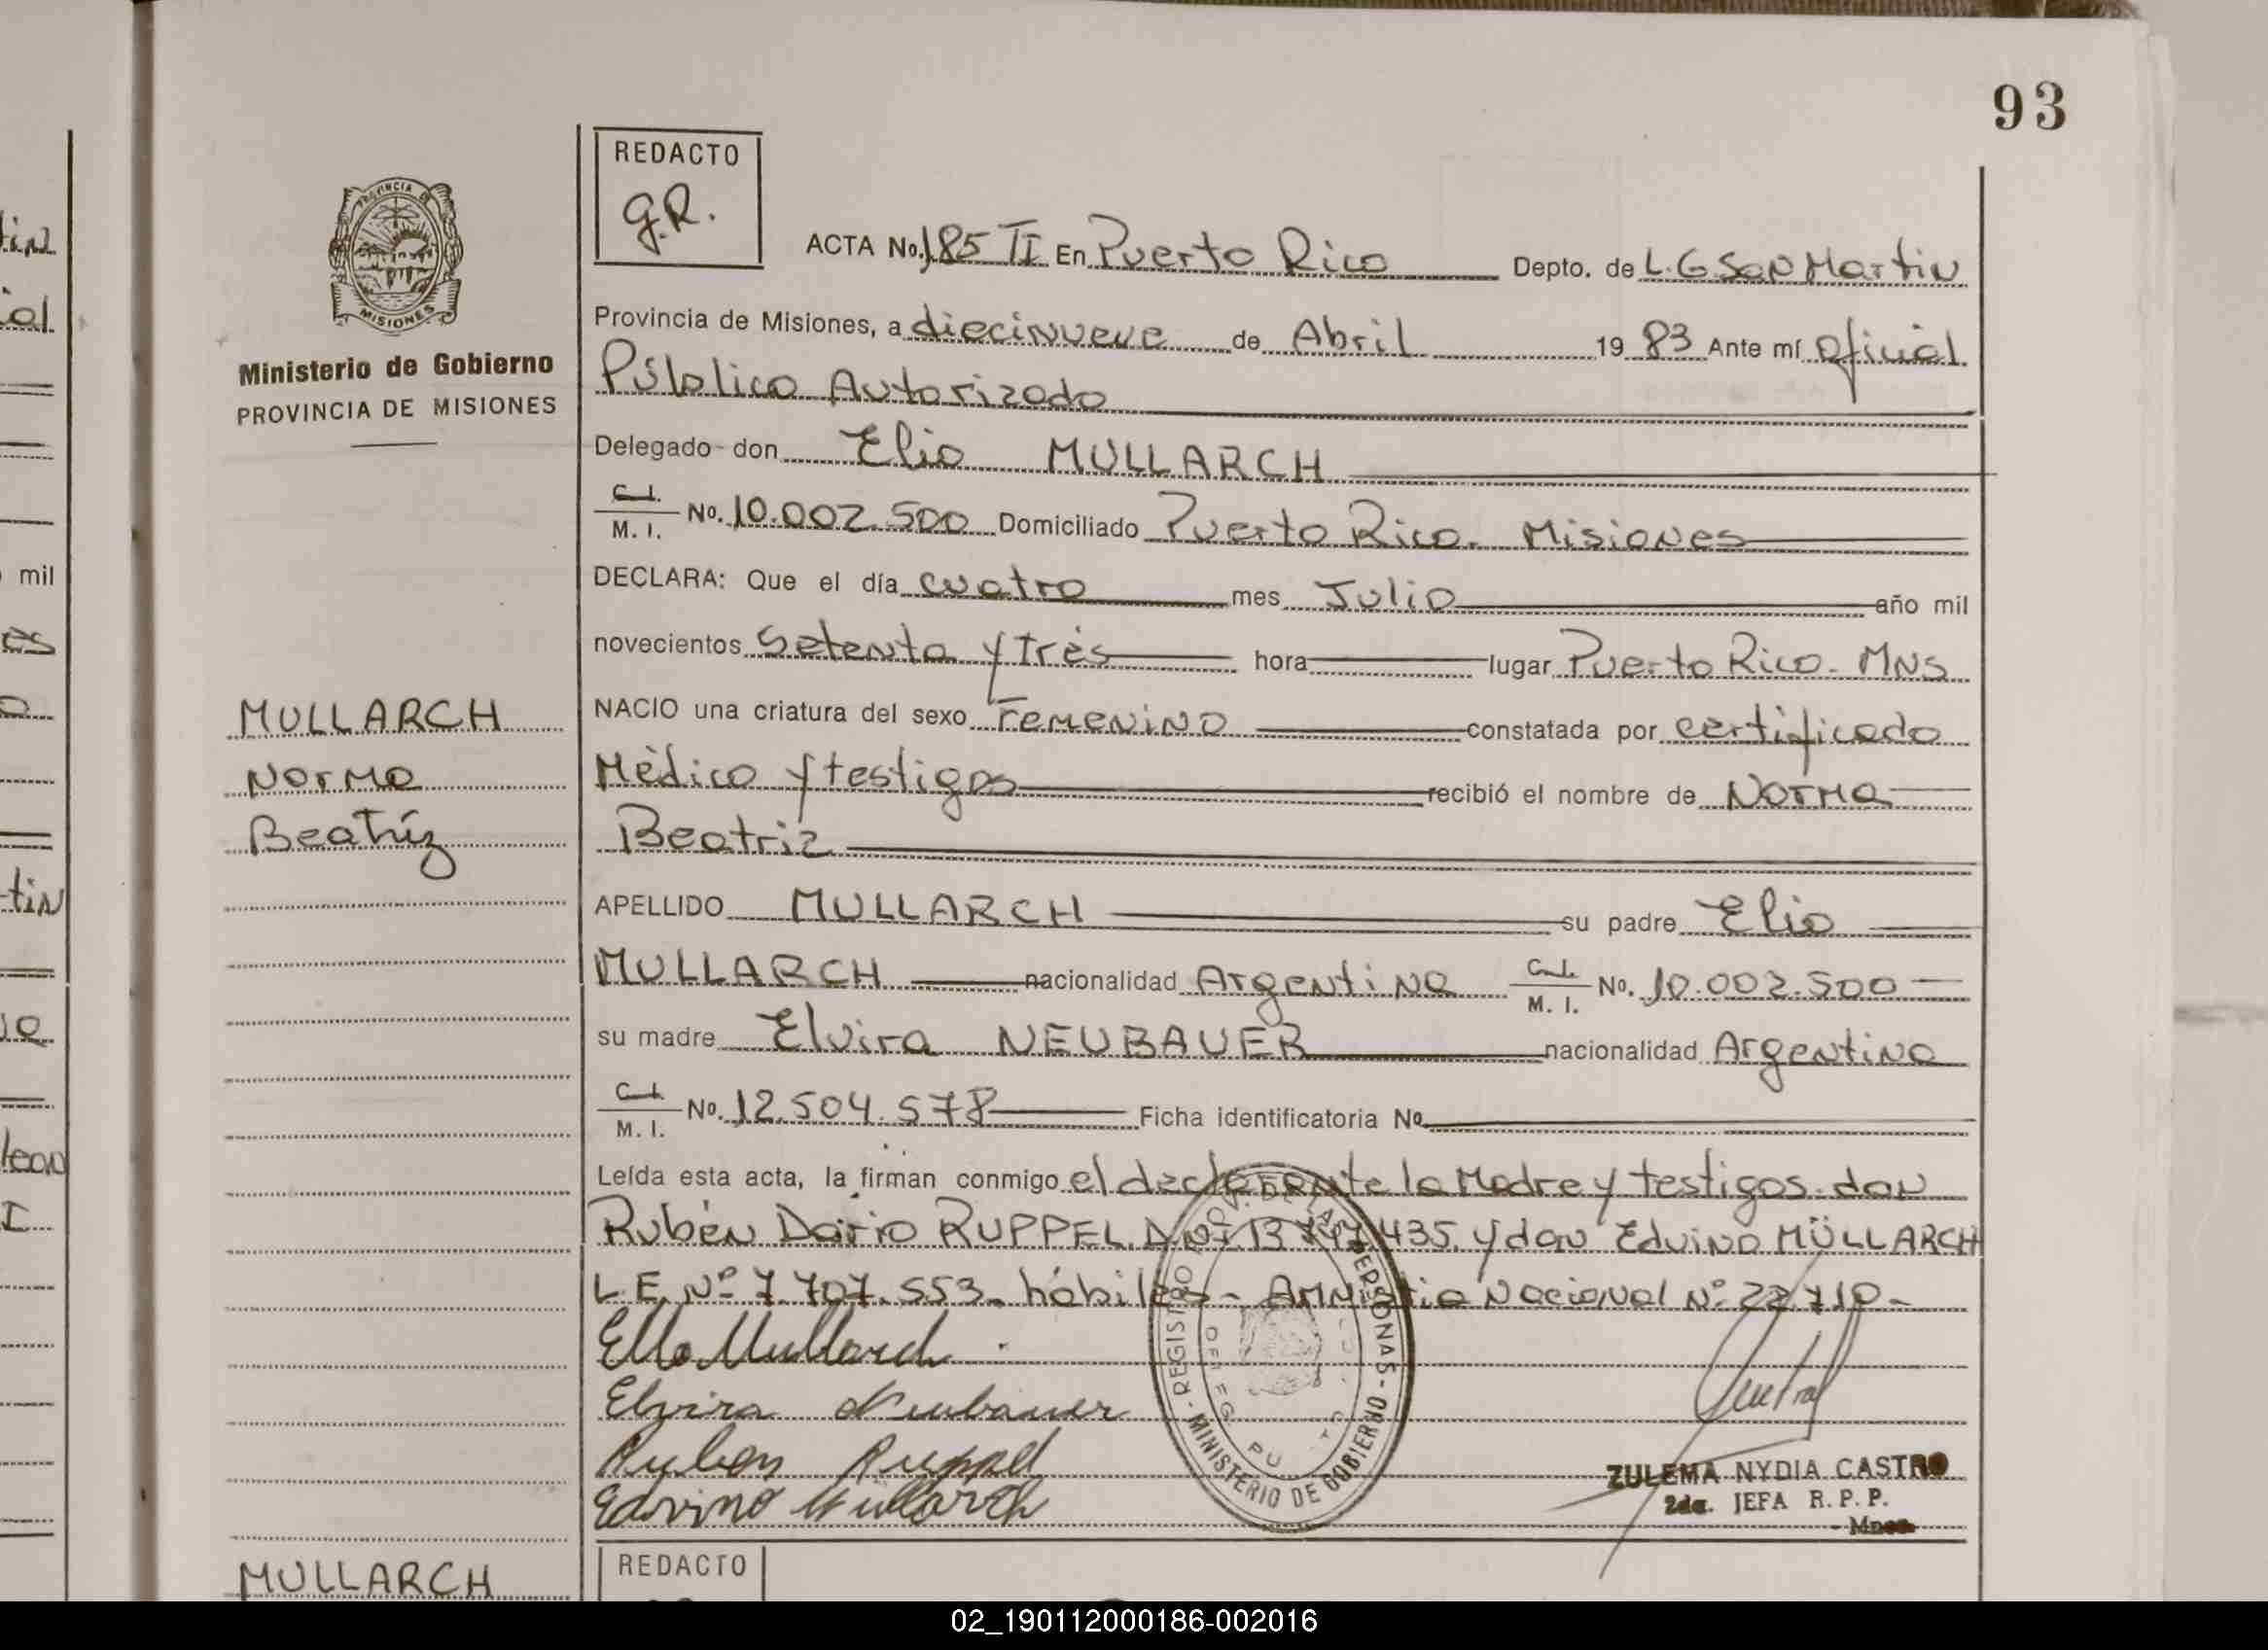 93
REDACTO
g.R.
ACTA No. 185 TI En Puerto Rico Depto. de L.G San Martin
Provincia de Misiones, a diecinueve de Abril 19 83 Ante mí Oficial
Público Autorizado
Delegado don Elio MULLARCH
C.I.
M. I. No. 10.002.500 Domiciliado Puerto Rico. Misiones
DECLARA: Que el día cuatro mes Julio año mil
novecientos Setenta y Tres hora lugar Puerto Rico. MNS
NACIO una criatura del sexo Femenino constatada por certificado
Mèdico y testigos recibió el nombre de Norma
Beatriz
APELLIDO MULLARCH su padre Elio
MULLARCH nacionalidad Argentina C.I. M. I. No. 10.002.500
su madre Elvira NEUBAUER nacionalidad Argentina
C.I.
M. I. No. 12.504.578 Ficha identificatoria No
Leída esta acta, la firman conmigo el declarante la Madre y testigos don
Rubén Dario RUPPEL D.N.I. 13 747 435 y don Edvino MÜLLARCH
L.E. Nº 7.707.553. hábiles - Amnistia Nacional Nº 22.710-
Elio Mullarch
Elvira Neubauer
Ruben Ruppel
Edvino Müllarch
REGISTRO PROV. DE LAS PERSONAS - MINISTERIO DE GOBIERNO -
ZULEMA NYDIA CASTRO
2da. JEFA R. P. P.
Mnes.
REDACTO
PROVINCIA DE
MISIONES
Ministerio de Gobierno
PROVINCIA DE MISIONES
MULLARCH
Norma
Beatríz
MULLARCH
mil
tin
02_190112000186-002016